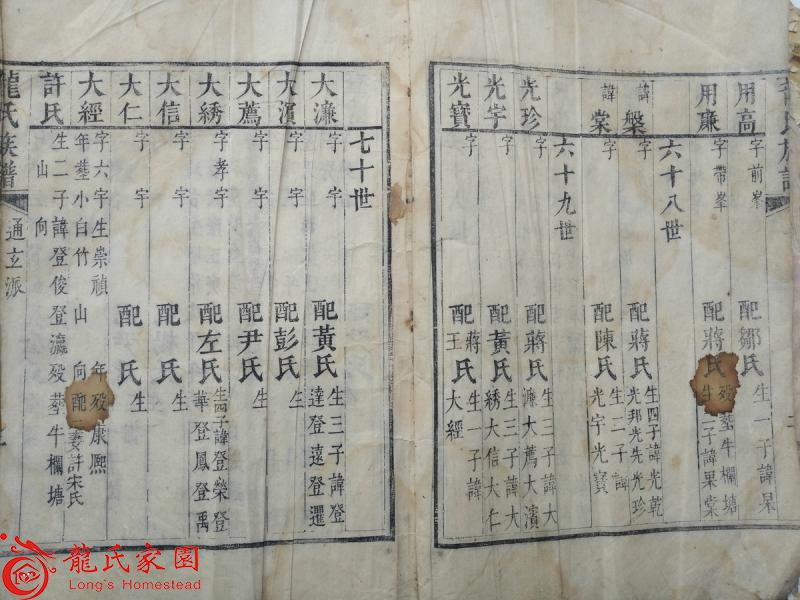 用高 字前峯 配鄒氏 生一子諱杲
用廉 字帶峯 配蔣氏 歿墓牛欄塘 生二子諱果棠
六十八世
諱槃 字 配蔣氏 生四子諱光乾 光邦光先光珍
諱棠 字 配陳氏 生二子諱 光宇光寶
六十九世
光珍 字 配蔣氏 生三子諱大 濂大薦大濱
光宇 字 配黃氏 生三子諱大 綉大信大仁
光寶 字 配蔣王氏 生一子諱 大經
七十世
大濂 字 配黃氏 生三子諱登 達登遠登暹
大濱 字 配彭氏 生
大薦 字 配尹氏 生
大綉 字孝字 配左氏 生四子諱登榮登 華登鳳登禹
大信 字 配 氏 生
大仁 字 配 氏 生
大經 字六字生崇禎 年歿康熙
年塟小白竹山 向配 妾許宋氏
許氏 生二子諱登俊登瀛歿塟牛欄塘
山 向
龍氏族譜 通玄派
龍氏家園
Long's Homestead